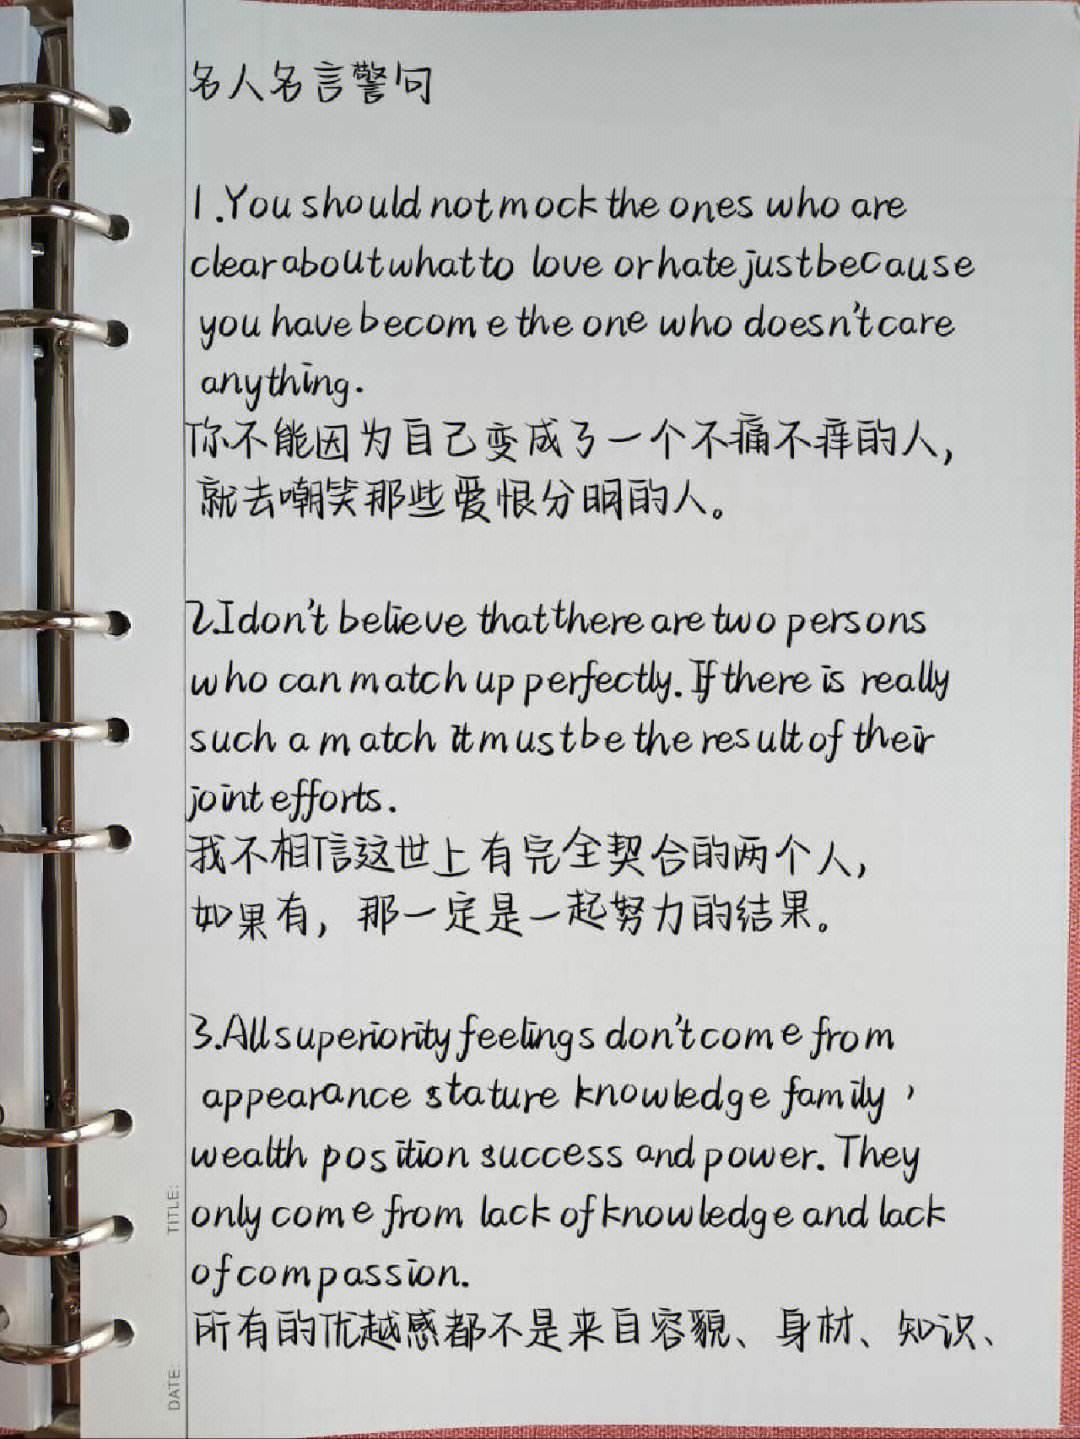 名人名言警句
1.You should not mock the ones who are
clear about what to love or hate just because
you have become the one who doesn't care
anything.
你不能因为自己变成了一个不痛不痒的人,
就去嘲笑那些爱恨分明的人。
2.I don't believe that there are two persons
who can match up perfectly. If there is really
such a match it must be the result of their
joint efforts.
我不相信这世上有完全契合的两个人,
如果有, 那一定是一起努力的结果。
3.All superiority feelings don't come from
appearance stature knowledge family ,
wealth position success and power. They
only come from lack of knowledge and lack
of compassion.
所有的优越感都不是来自容貌、身材、知识、
TITLE:
DATE: